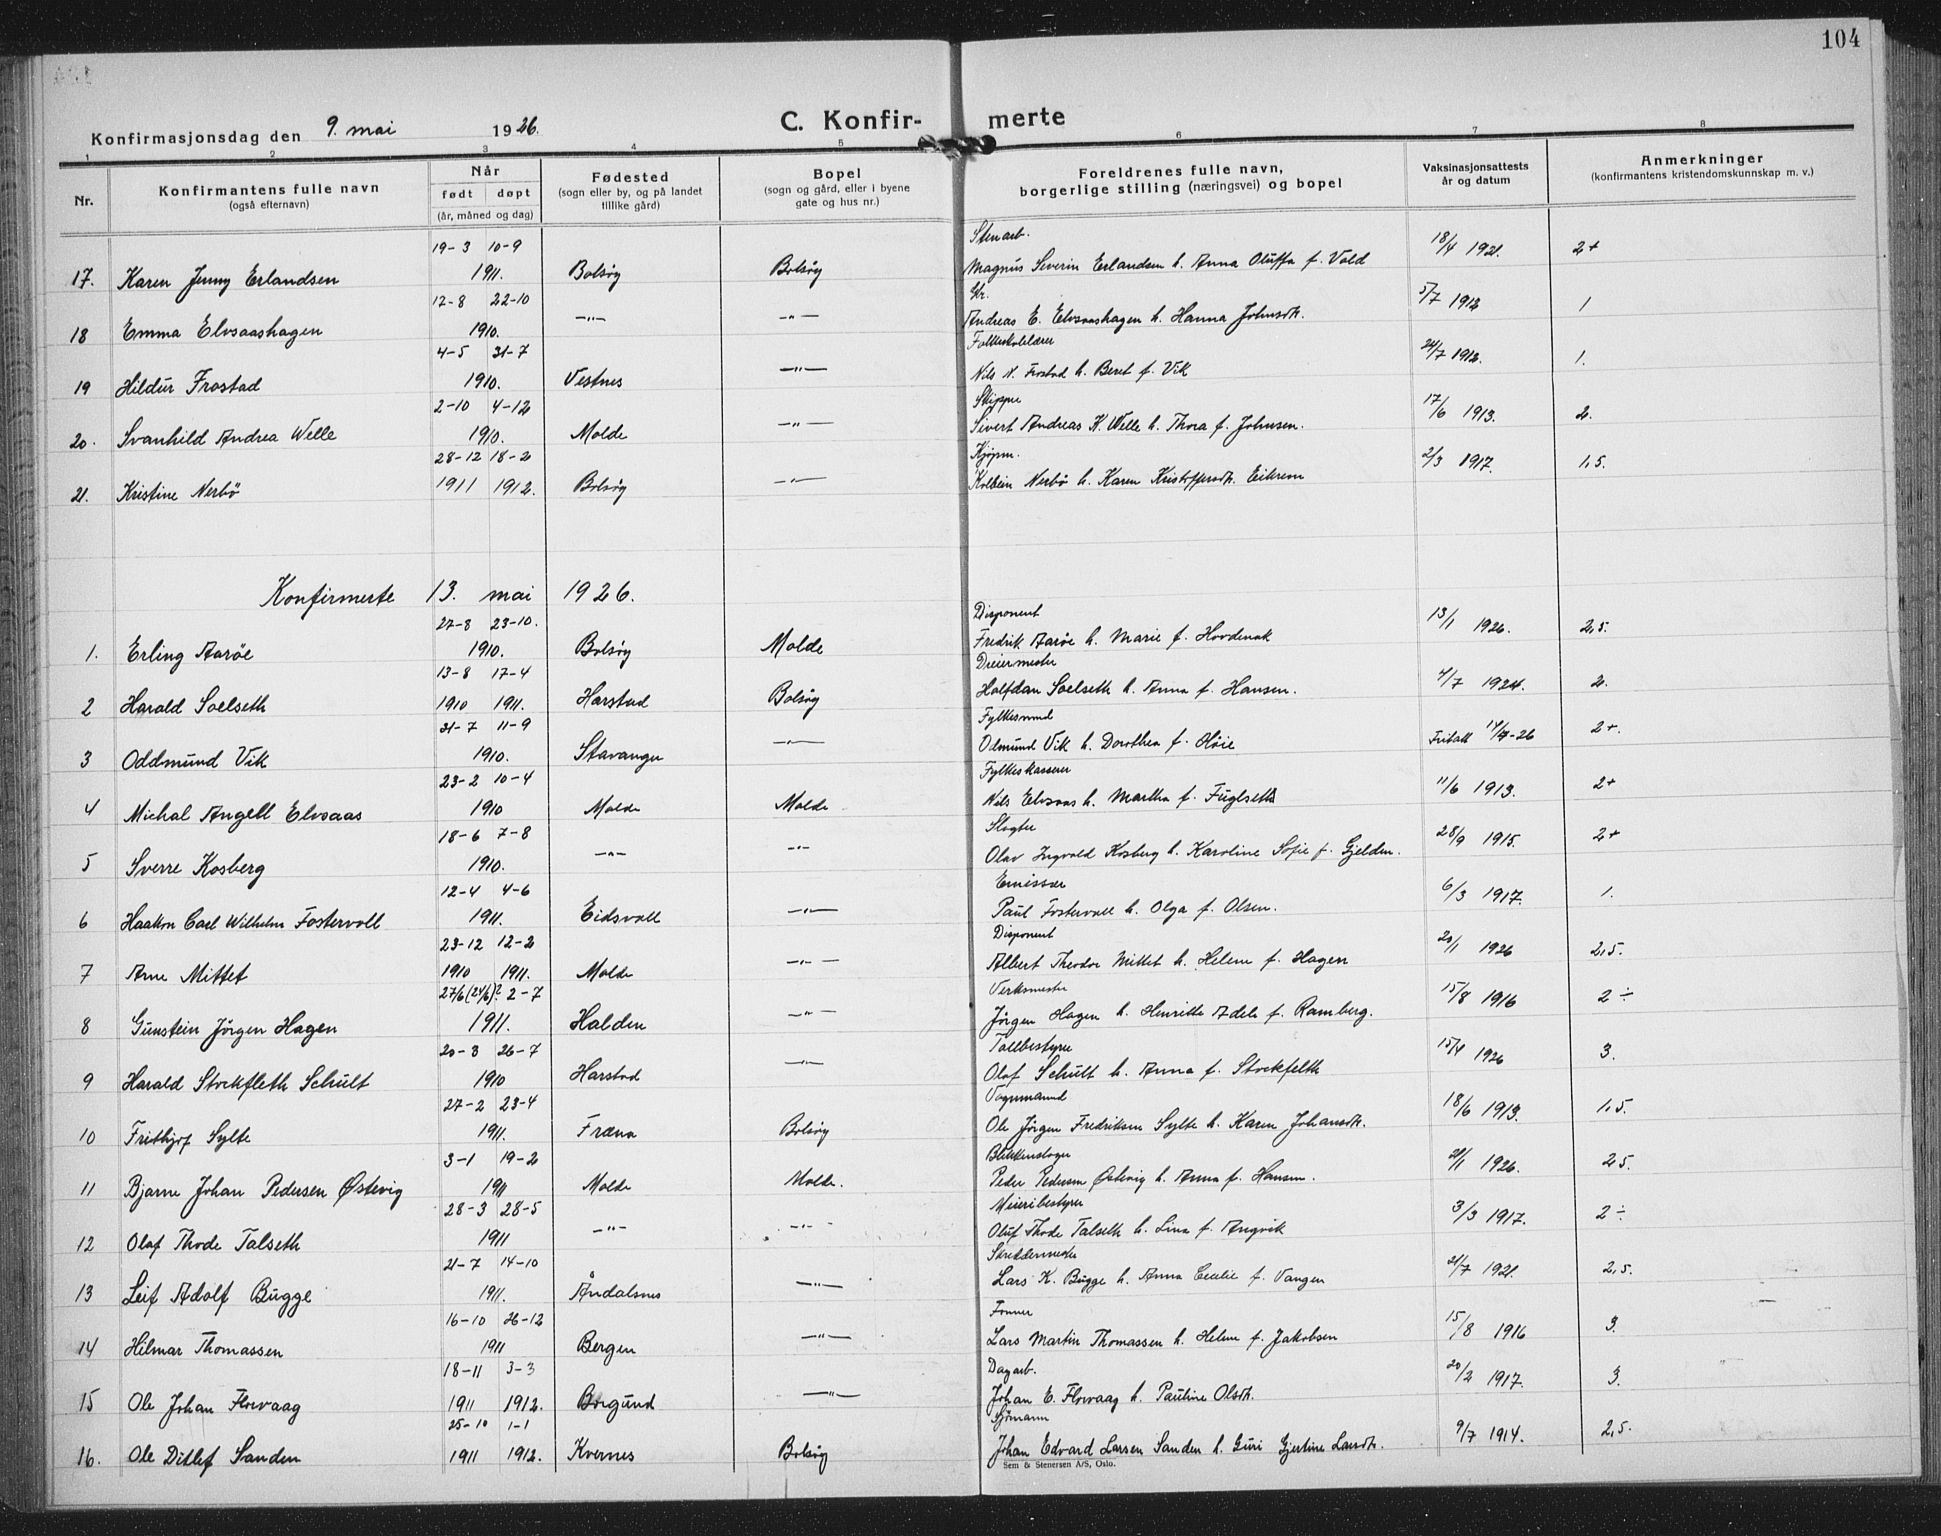 104
Konfirmasjonsdag den 9. mai 1926.
C. Konfirmerte
1 2 3 4 5 6 7 8
Nr. Konfirmantens fulle navn (også efternavn) Når født døpt (år, måned og dag) Fødested (sogn eller by, og på landet tillike gård) Bopel (sogn og gård, eller i byene gate og hus nr.) Foreldrenes fulle navn, borgerlige stilling (næringsvei) og bopel Vaksinasjonsattests år og datum Anmerkninger (konfirmantens kristendomskunnskap m. v.)
19-3 10-9 Stenarb.
17. Karen Jenny Erlandsen 1911. Bolsøy Bolsøy Magnus Severin Erlandsen h. Anna Oluffa f. Vold 18/4 1921. 2+
12-8 22-10 Gbr.
18 Emma Elvsaashagen 1910. —"— —"— Andreas E. Elvsaashagen h. Hanna Johnsdtr. 5/7 1912 1
4-5 31-7 Folkeskolelærer
19 Hildur Frostad 1910. Vestnes —"— Nils N. Frostad h. Beret f. Vik 24/7 1912. 1.
2-10 4-12 Skipper
20. Svanhild Andrea Welle 1910. Molde —"— Sivert Andreas K. Welle h. Thora f. Johnsen. 17/6 1913. 2.
28-12 18-2 Kjøpm.
21. Kristine Nerbö 1911 1912. Bolsøy —"— Kolbein Nerbö h. Karen Kristoffersdtr. Eikrem 2/3 1917. 1,5.
Konfirmerte 13. mai 1926.
27-8 23-10. Disponent
1. Erling Aarøe 1910. Bolsøy Molde Fredrik Aarøe h. Marie f. Hovdenak 13/1 1926. 2,5.
13-8 17-4 Dreiermester
2 Harald Soelseth 1910 1911. Harstad Bolsøy Halfdan Soelseth h. Anna f. Hansen. 4/7 1924. 2.
31-7 11-9 Fylkesmand
3 Oddmund Vik 1910. Stavanger —"— Odmund Vik h. Dorthea f. Høie Fritatt 14/4-26 2+.
23-2 10-4 Fylkeskasserer
4 Michal Angell Elvsaas 1910 Molde Molde Nils Elvsaas h. Martha f. Fuglseth 11/6 1913. 2+
18-6 7-8 Slagter
5 Sverre Kosberg 1910. —"— —"— Olav Ingvald Kosberg h. Karoline Sofie f. Gjelden. 28/9 1915. 2+
12-4 4-6 Emissær
6 Haakon Carl Wilhelm Fostervoll 1911. Eidsvoll —"— Paul Fostervoll h. Olga f. Olsen. 6/3 1917. 1.
23-12 12-2 Disponent
7 Arne Mittet 1910 1911. Molde —"— Albert Theodor Mittet h. Helene f. Hagen 20/1 1926 2,5.
27/6 (24/6)? 2-7 Verksmester
8 Gunstein Jörgen Hagen 1911. Halden —"— Jörgen Hagen h. Henriette Adele f. Ramberg. 15/8 1916 2 ÷
20-3 26-7 Tollbestyrer
9 Harald Stockfleth Schult 1910 Harstad —"— Olaf Schult h. Anna f. Stockfelth 15/4 1926 3.
27-2 23-4 Vognmand
10 Frithjof Sylte 1911. Fræna Bolsøy Ole Jörgen Fredriksen Sylte h. Karen Johansdtr. 18/6 1913. 1,5.
3-1 19-2 Blikkenslager
11 Bjarne Johan Pedersen Østevig 1911 Molde Molde. Peder Pedersen Østevig h. Anna f. Hansen. 21/1 1926. 2,5.
28-3 28-5 Meieribestyrer
12 Olaf Thode Talseth 1911 —"— —"— Oluf Thode Talseth h. Lina f. Angvik 3/3 1917. 2 ÷
21-7 14-10 Skreddermester
13 Leif Adolf Bugge 1911. Åndalsnes —"— Lars K. Bugge h. Anna Cecilie f. Vangen 21/7 1921. 2,5.
16-10 26-12
14 Hilmar Thomassen 1911 Bergen —"— Lars Martin Thomassen h. Helene f. Jakobsen 15/8 1916 3.
18-11 3-3 Dagarb.
15 Ole Johan Florvaag 1911 1912. Borgund —"— Johan E. Florvaag h. Pauline Olsdtr. 20/2 1917. 3.
25-10 1-1 Sjømann
16. Ole Ditlef Sanden 1911 1912. Kvernes Bolsøy Johan Edvard Larsen Sanden h. Guri Gjertine Larsdtr. 9/7 1914. 2,5.
Sem & Stenersen A/S, Oslo.